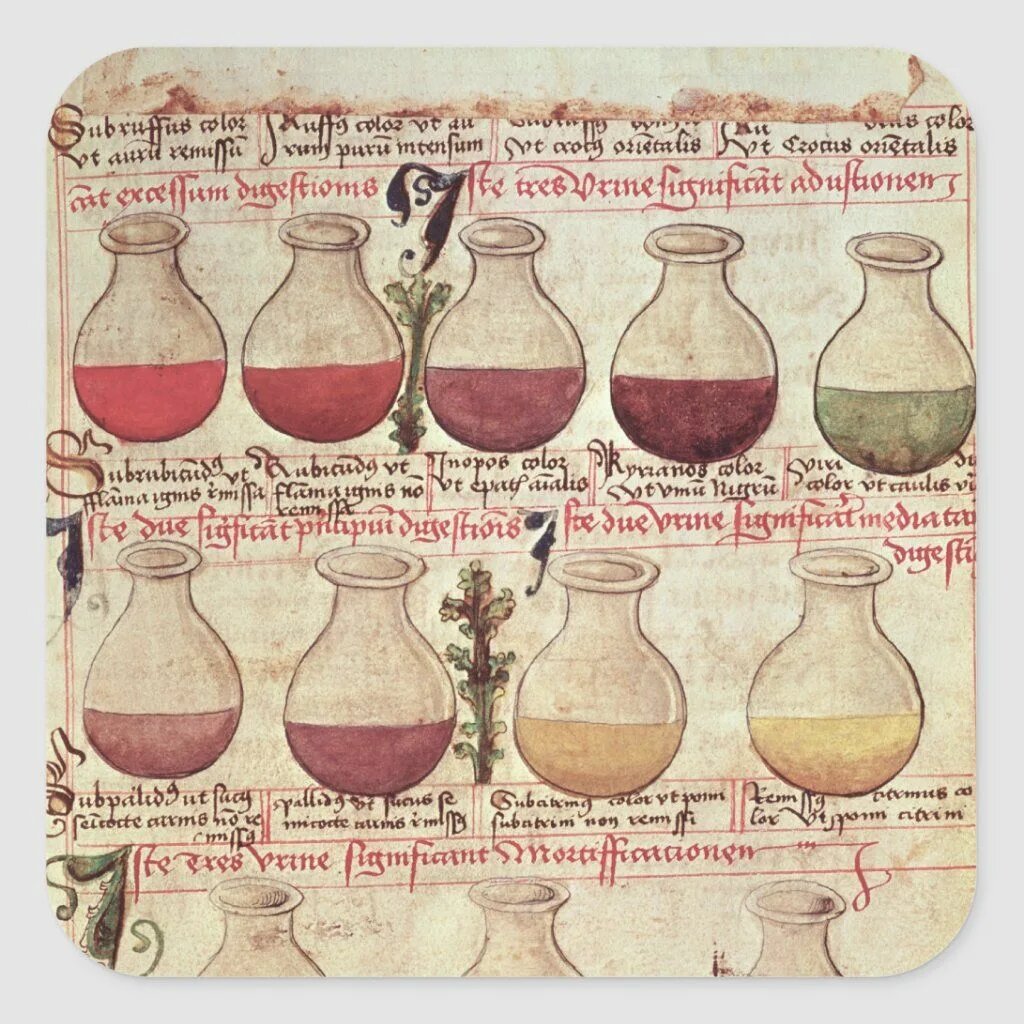 Subruffus color
ut auru remissu
Ruffq color ut au
rum puru intensum
ut crocq orientalis
color
ut Crocus orientalis
cat excessum digestionis
Iste tres Urine significat adustionem
Subrubicudq ut
flama ignis remissa
Rubicudq ut
flama ignis no
remissa
Inopos color
ut epatq aialis
Kyrianos color
ut vinum Nigru
color ut caulis vi
Iste due sigficat pncipiu digestiois
Iste due Urine significat media
digesti
Subpalidq ut sucq
semicocte carnis no re
missq
pallidq ut sucus se
micocte carnis remissq
Subcitrinq color ut pomi
subcitrini non remissi
Remissq citrinus co
lor ut pomi citrini
Iste Tres Urine significant Mortifficacionem